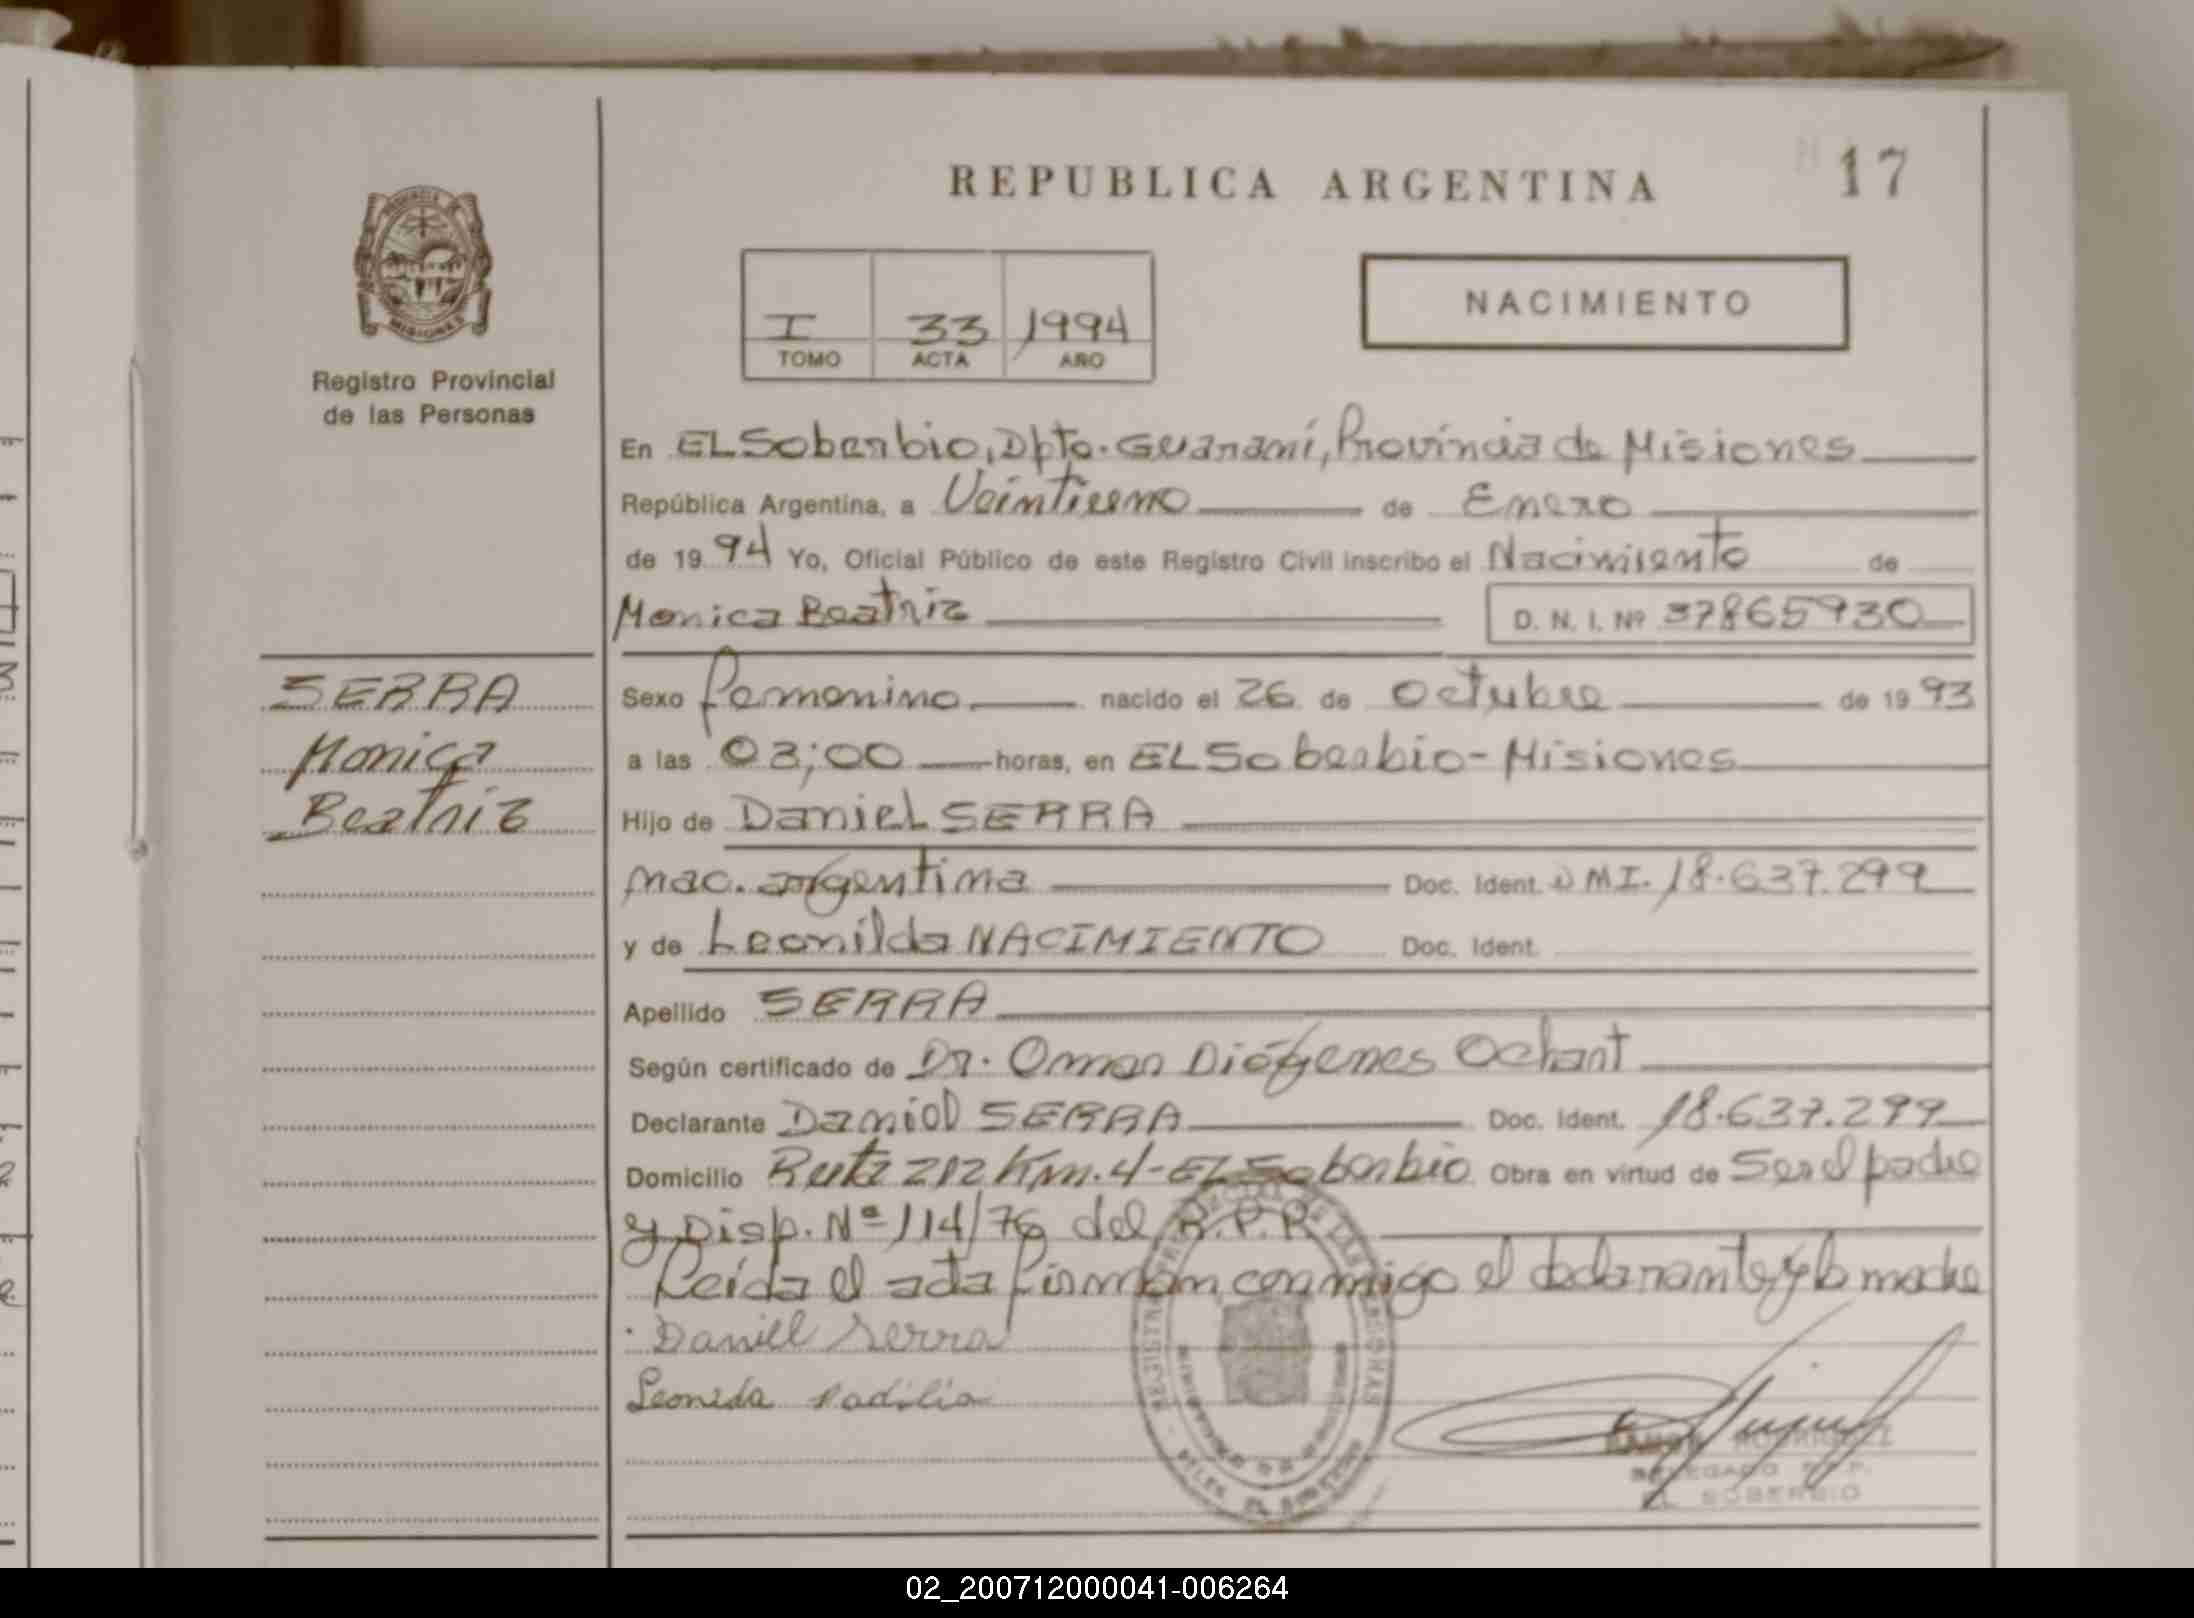 REPUBLICA ARGENTINA
17
I 33 1994
TOMO ACTA AÑO
NACIMIENTO
PROVINCIA DE
MISIONES
Registro Provincial
de las Personas
En EL Soberbio, Dpto. Guaraní, Provincia de Misiones
República Argentina, a Veintiuno de Enero
de 1994 Yo, Oficial Público de este Registro Civil inscribo el Nacimiento de
Monica Beatriz D. N. I. Nº 37865930
SERRA
Monica
Beatriz
Sexo femenino nacido el 26 de Octubre de 1993
a las 03;00 horas, en EL Soberbio - Misiones
Hijo de Daniel SERRA
nac. argentina Doc. Ident. DNI. 18.637.299
y de Leonilda NACIMIENTO Doc. Ident.
Apellido SERRA
Según certificado de Dr. Omar Diógenes Ochant
Declarante Daniel SERRA Doc. Ident. 18.637.299
Domicilio Ruta 212 Km. 4 - EL Soberbio Obra en virtud de Ser el padre
y Disp. Nº 114/76 del R.P.P.
Leída el acta firman conmigo el declarante y la madre
Daniel Serra
Leonida
RAMON RODRIGUEZ
DELEGADO R.P.P.
EL SOBERBIO
02_200712000041-006264